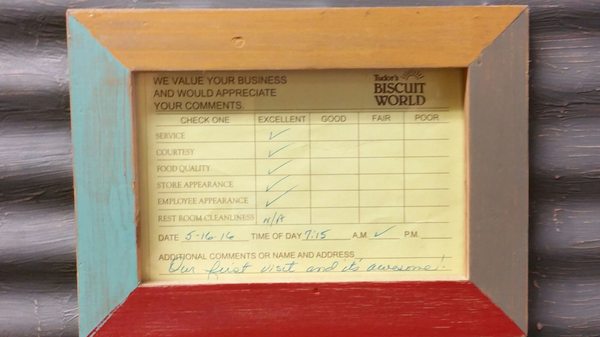 WE VALUE YOUR BUSINESS
AND WOULD APPRECIATE
YOUR COMMENTS.
Tudor's
BISCUIT
WORLD
CHECK ONE EXCELLENT GOOD FAIR POOR
SERVICE ✓
COURTESY ✓
FOOD QUALITY ✓
STORE APPEARANCE ✓
EMPLOYEE APPEARANCE ✓
REST ROOM CLEANLINESS N/A
DATE 5-16-16 TIME OF DAY 7:15 A.M. ✓ P.M.
ADDITIONAL COMMENTS OR NAME AND ADDRESS
Our first visit and it's awesome!